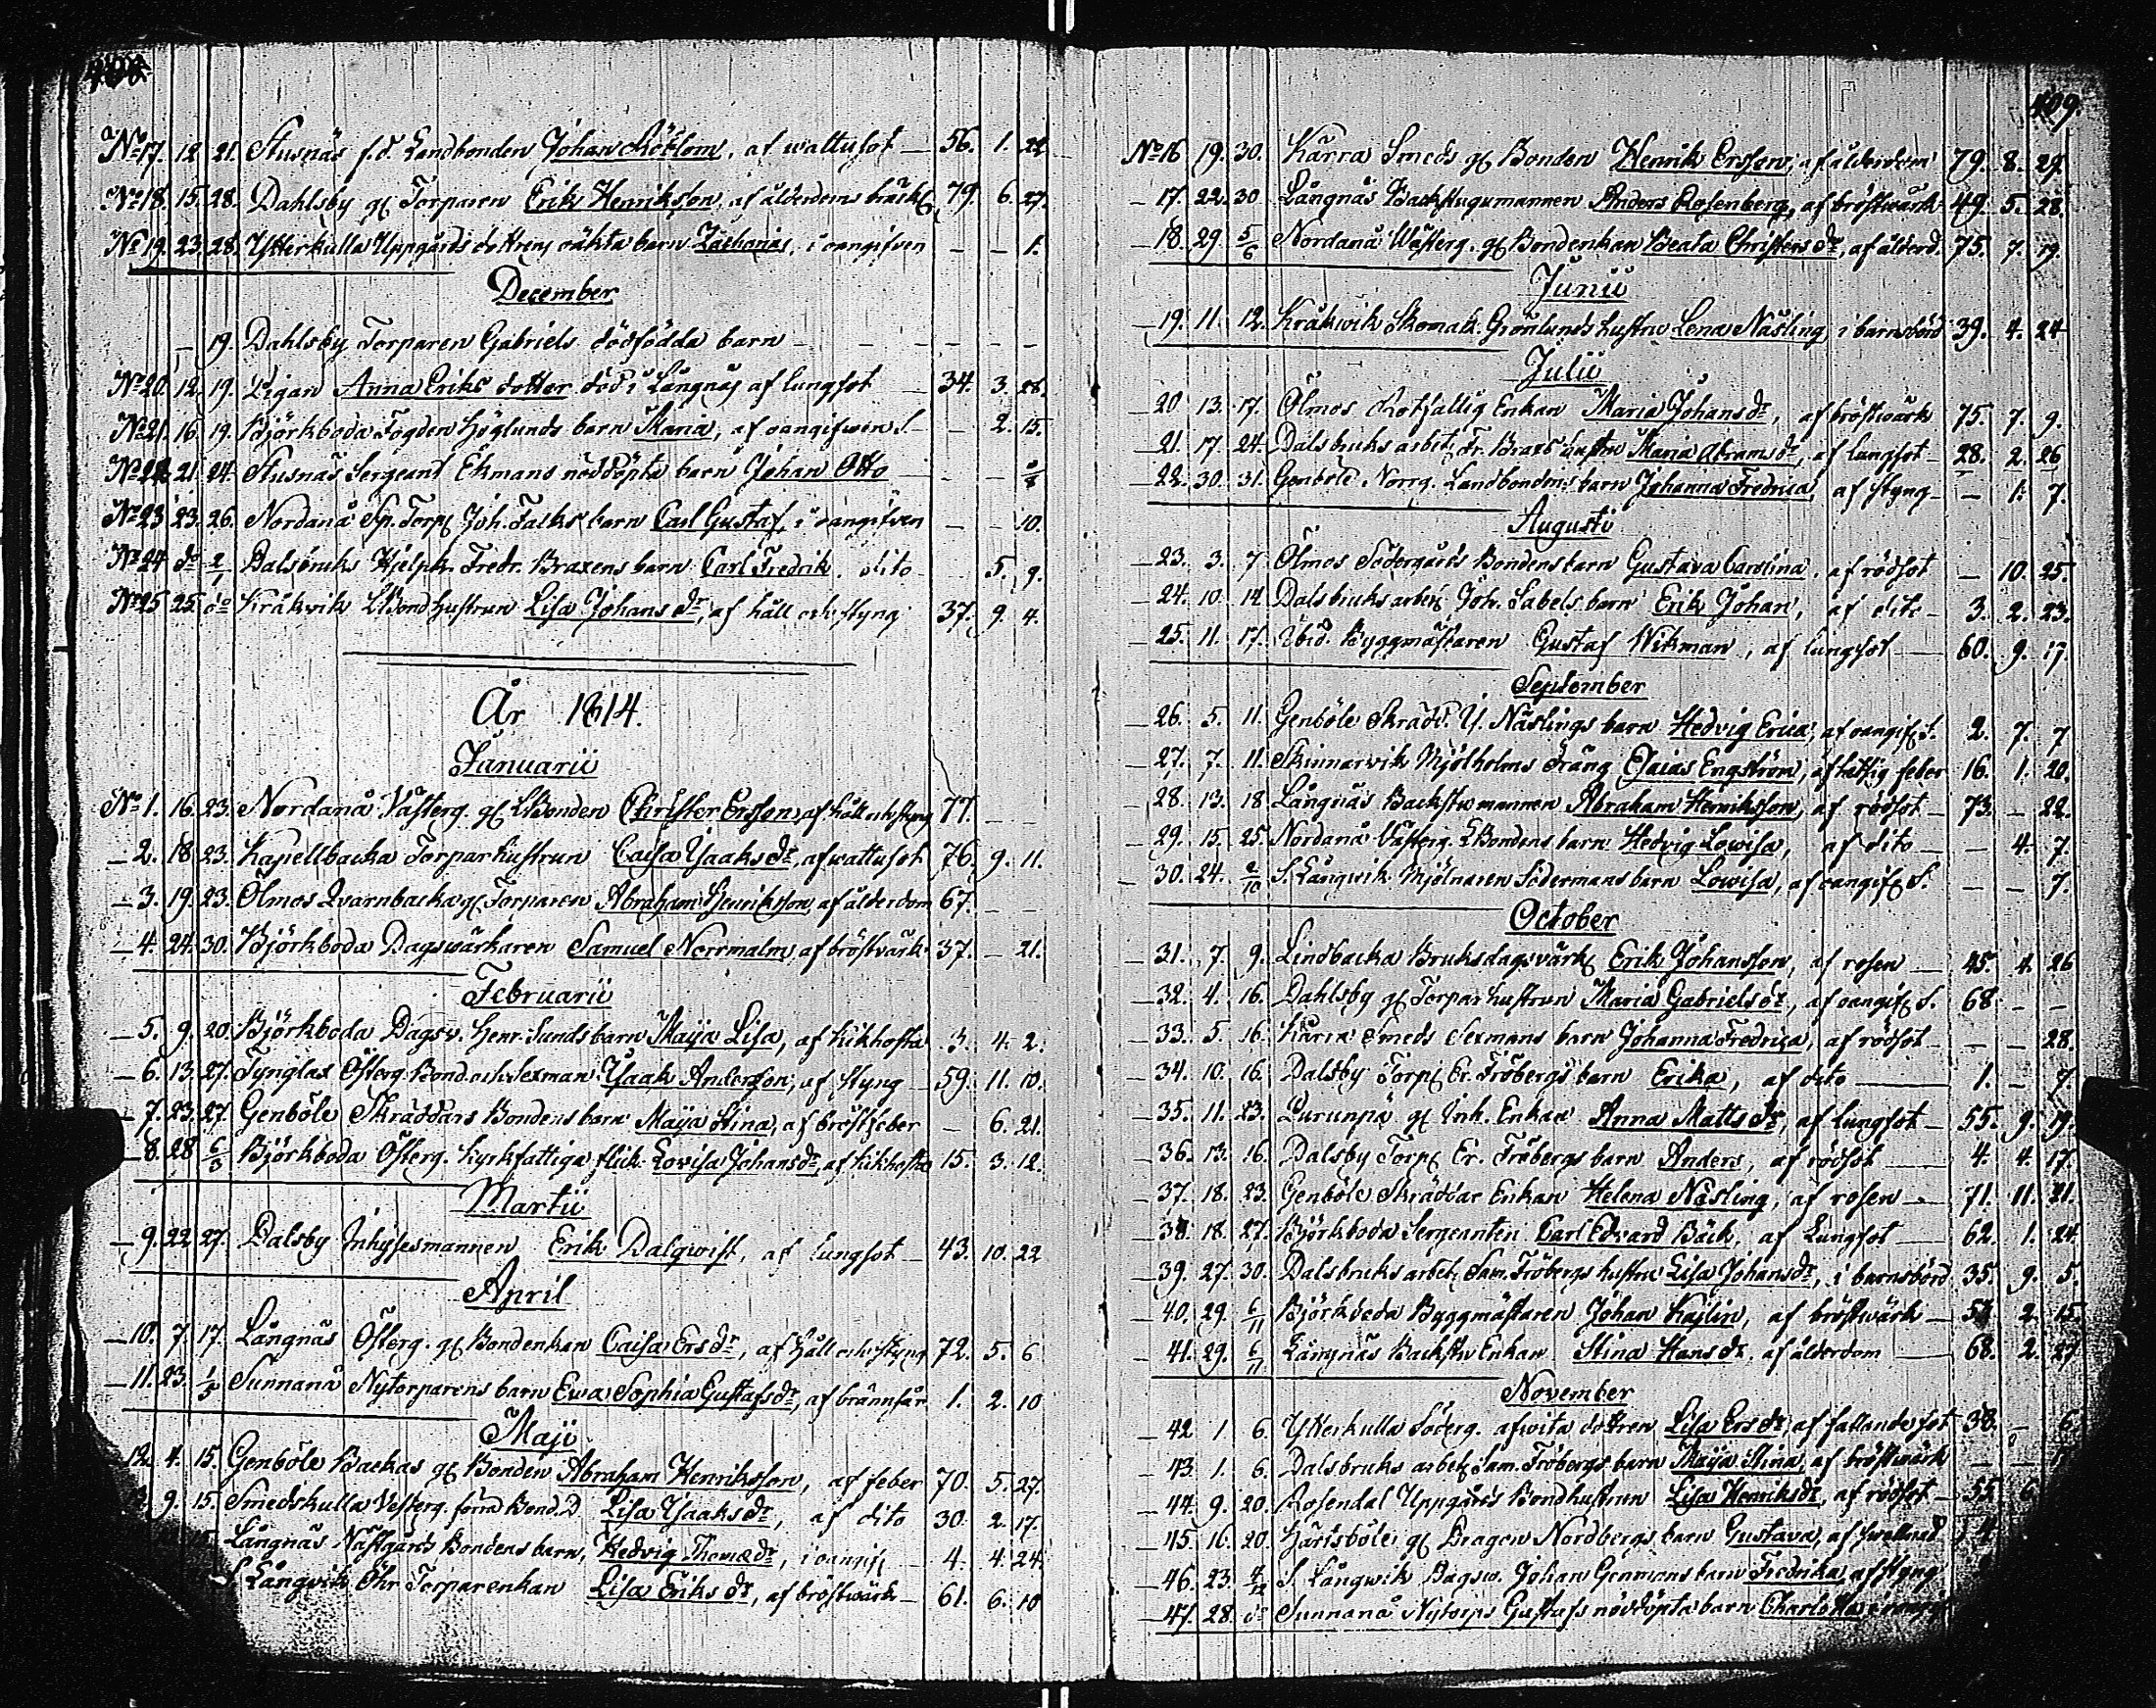 No 17. 12. 21. Stusnäs f.d. Landbonden Johan Sköblom, af wattusot — 56. 1. 22
No 18. 15. 28. Dahlsby gl Torparen Erik Henriksson, af ålderdoms bräckl 79. 6. 27.
No 19. 23. 28. Ytterkulla Uppgårds dottrens oäkta barn Zacharias, i oangifven — — 1.
December
— 19. Dahlsby Torparen Gabriels dödfödda barn — — — —
No 20. 12. 19. Pigan Anna Eriks dotter död i Långnäs af lungsot — 34. 3. 28.
No 21. 16. 19. Björkboda Fogden Höglunds barn Maria, af oangifwen S. — — 2. 15.
No 22. 21. 24. Stusnäs Sergeant Ekmans nöddöpta barn Johan Otto — —
No 23. 23. 26. Nordanå Sp. Torp Joh. Falks barn Carl Gustaf, i oangifven — — 10.
No 24 do 2/1 Dalsbruks Hjelpk. Fredr. Braxens barn Carl Fredrik. dito — 5. 9.
No 25. 25. do Kråkvik LBond Hustrun Lisa Johans dr, af håll och styng 37. 9. 4.
År 1814.
Januarii
No 1. 16. 23. Nordanå Västerg. gl LBonden Christer Ersson, af håll och styng 77. — —
— 2. 18. 23. Kapellbacka Torparhustrun Caisa Ysaks dr, af wattusot 76. 9. 11.
— 3. 19. 23. Ölmos Qvarnbacka gl Torparen Abraham Henriksson, af ålderdom 67. — —
— 4. 24. 30. Björkboda Dagswärkaren Samuel Norrmalm, af bröstvärk 37. — 21.
Februarii
— 5. 9. 20. Björkboda Dagsv. Henr. Sunds barn Maija Lisa, af kikhosta 3. 4. 2.
— 6. 13. 27. Tynglax Österg. Bond. och Sexman Ysaak Andersson, af styng — 59. 11. 10.
— 7. 23. 27. Genböle Skräddars Bondens barn Maija Stina, af bröstfeber — 6. 21.
— 8. 28 6/3 Björkboda Österg. Kyrkfattiga flick. Lovisa Johans dr, af kikhosta 15. 3. 12.
Martii
— 9. 22. 27. Dalsby Inhysesmannen Erik Dalqwist, af lungsot — 43. 10. 22
April
— 10. 7. 17. Långnäs Österg. gl Bondenkan Caisa Ers dr, af håll och styng 72. 5. 6
— 11. 23. 1/5 Sunnanå Nytorparens barn Ewa Sophia Gustafs dr, af brännsår 1. 2. 10
Maji
12. 4. 15. Genböle Backas gl Bonden Abraham Henriksson, af feber 70. 5. 27.
9. 15. Smedskulla Vesterg. förra Bond.D Lisa Ysaaks dr, af dito 30. 2. 17.
Långnäs Nästgårds Bondens barn, Hedvig Thomæ dr, i oangif — 4. 4. 24.
Långvik Öhr Torparenkan Lisa Eriks dr, af bröstwärk — 61. 6. 10
409.
No 16 19. 30. Kärra Smeds gl Bonden Henrik Ersson, af ålderdom 79. 8. 29.
— 17. 22. 30. Långnäs Backstugumannen Anders Rosenberg, af bröstwärk 49. 5. 28.
— 18. 29. 5/6 Nordanå Wästerg. gl Bondenkan Beata Christers dr, af ålderd. 75. 7. 19.
Junii
— 19. 11. 12. Kråkwik Skomak. Grönlunds hustru Lena Näsling, i barnsbörd 39. 4. 24
Julii
— 20 13. 17. Ölmos Rotfattig Enkan Maria Johans dr, af bröstwärk 75. 7. 9.
— 21. 17. 24. Dalsbruks arbet. Fr. Brax's hustru Maria Abrams dr, af lungsot — 28. 2. 26
— 22. 30. 31. Genböle Norrg. Landbondens barn Johanna Fredrica, af styng — — 1. 7.
Augusti
— 23. 3. 7. Ölmos Södergårds Bondens barn Gustava Carolina, af rödsot — 10. 25.
— 24. 10. 14. Dalsbruks arbet. Joh. Sabels barn Erik Johan, af dito — 3. 2. 23.
— 25. 11. 17. Ibid. Byggmästaren Gustaf Wikman, af lungsot — 60. 9. 17.
September
— 26. 5. 11. Genböle Skrädd. Y. Näslings barn Hedvig Erica, af oangif S. 2. 7. 7
— 27. 7. 11. Skinnarvik Mjölholms dräng Esaias Engström, af hetsig feber 16. 1. 20.
— 28. 13. 18. Långnäs Backstumannen Abraham Henriksson, af rödsot — 73. — 22.
— 29. 15. 25. Nordanå Västerg. LBondens barn Hedvig Lowisa, af dito — — 4. 7.
— 30. 24. 2/10 S. Långwik Mjölnaren Södermans barn Lowisa, af oangif S. — — 7.
October
— 31. 7. 9. Lindbacka Bruksdagsvärk Erik Johansson, af rosen — 45. 4. 26
— 32. 4. 16. Dahlsby gl Torparhustrun Maria Gabriels dr, af oangif S. 68. — —
— 33. 5. 16. Kärra Smeds Sexmans barn Johanna Fredrica, af rödsot — — 28.
— 34. 10. 16. Dalsby Torp Er. Fröbergs barn Erika, af dito — 1. — 7
— 35. 11. 23. gl Inh. Enkan Anna Matts dr, af lungsot — 55. 9. 19.
— 36. 13. 16. Dalsby Torp Er. Fröbergs barn Anders, af rödsot — 4. 4. 17.
— 37. 18. 23. Genböle Skräddar Enkan Helena Näsling, af rosen — 71. 11. 21.
— 38. 18. 27. Björkboda Sergeanten Carl Edvard Bäck, af Lungsot — 62. 1. 24.
— 39. 27. 30. Dalsbruks arbet. Sam. Fröbergs hustru Lisa Johans dr, i barnsbörd 35. 9. 5.
— 40. 29. 6/11 Björkboda Byggmästaren Johan Kajlin, af bröstwärk — 2. 15.
— 41. 29. 6/11 Långnäs Backstu Enkan Stina Hans dr, af ålderdom — 68. 2. 27
November
— 42 1 6. Ytterkulla Söderg. afwita dottren Lisa Ers dr, af fallande sot 38. — 6.
— 43. 1. 6. Dalsbruks arbet. Sam. Fröbergs barn Maija Stina, af bröstwärk —
— 44. 9. 20. Rosendal Uppgårds Bondhustrun Lisa Henriks dr, af rödsot — 55 6
— 45. 16. 20. Hartsböle gl Dragon Nordbergs barn Gustava, af
— 46. 23. 4/12 S. Långwik Dagsw. Johan Genmans barn Fredrika, af styng
— 47. 28. do Sunnanå Nytorps Gustafs nöddöpta barn Charlotta